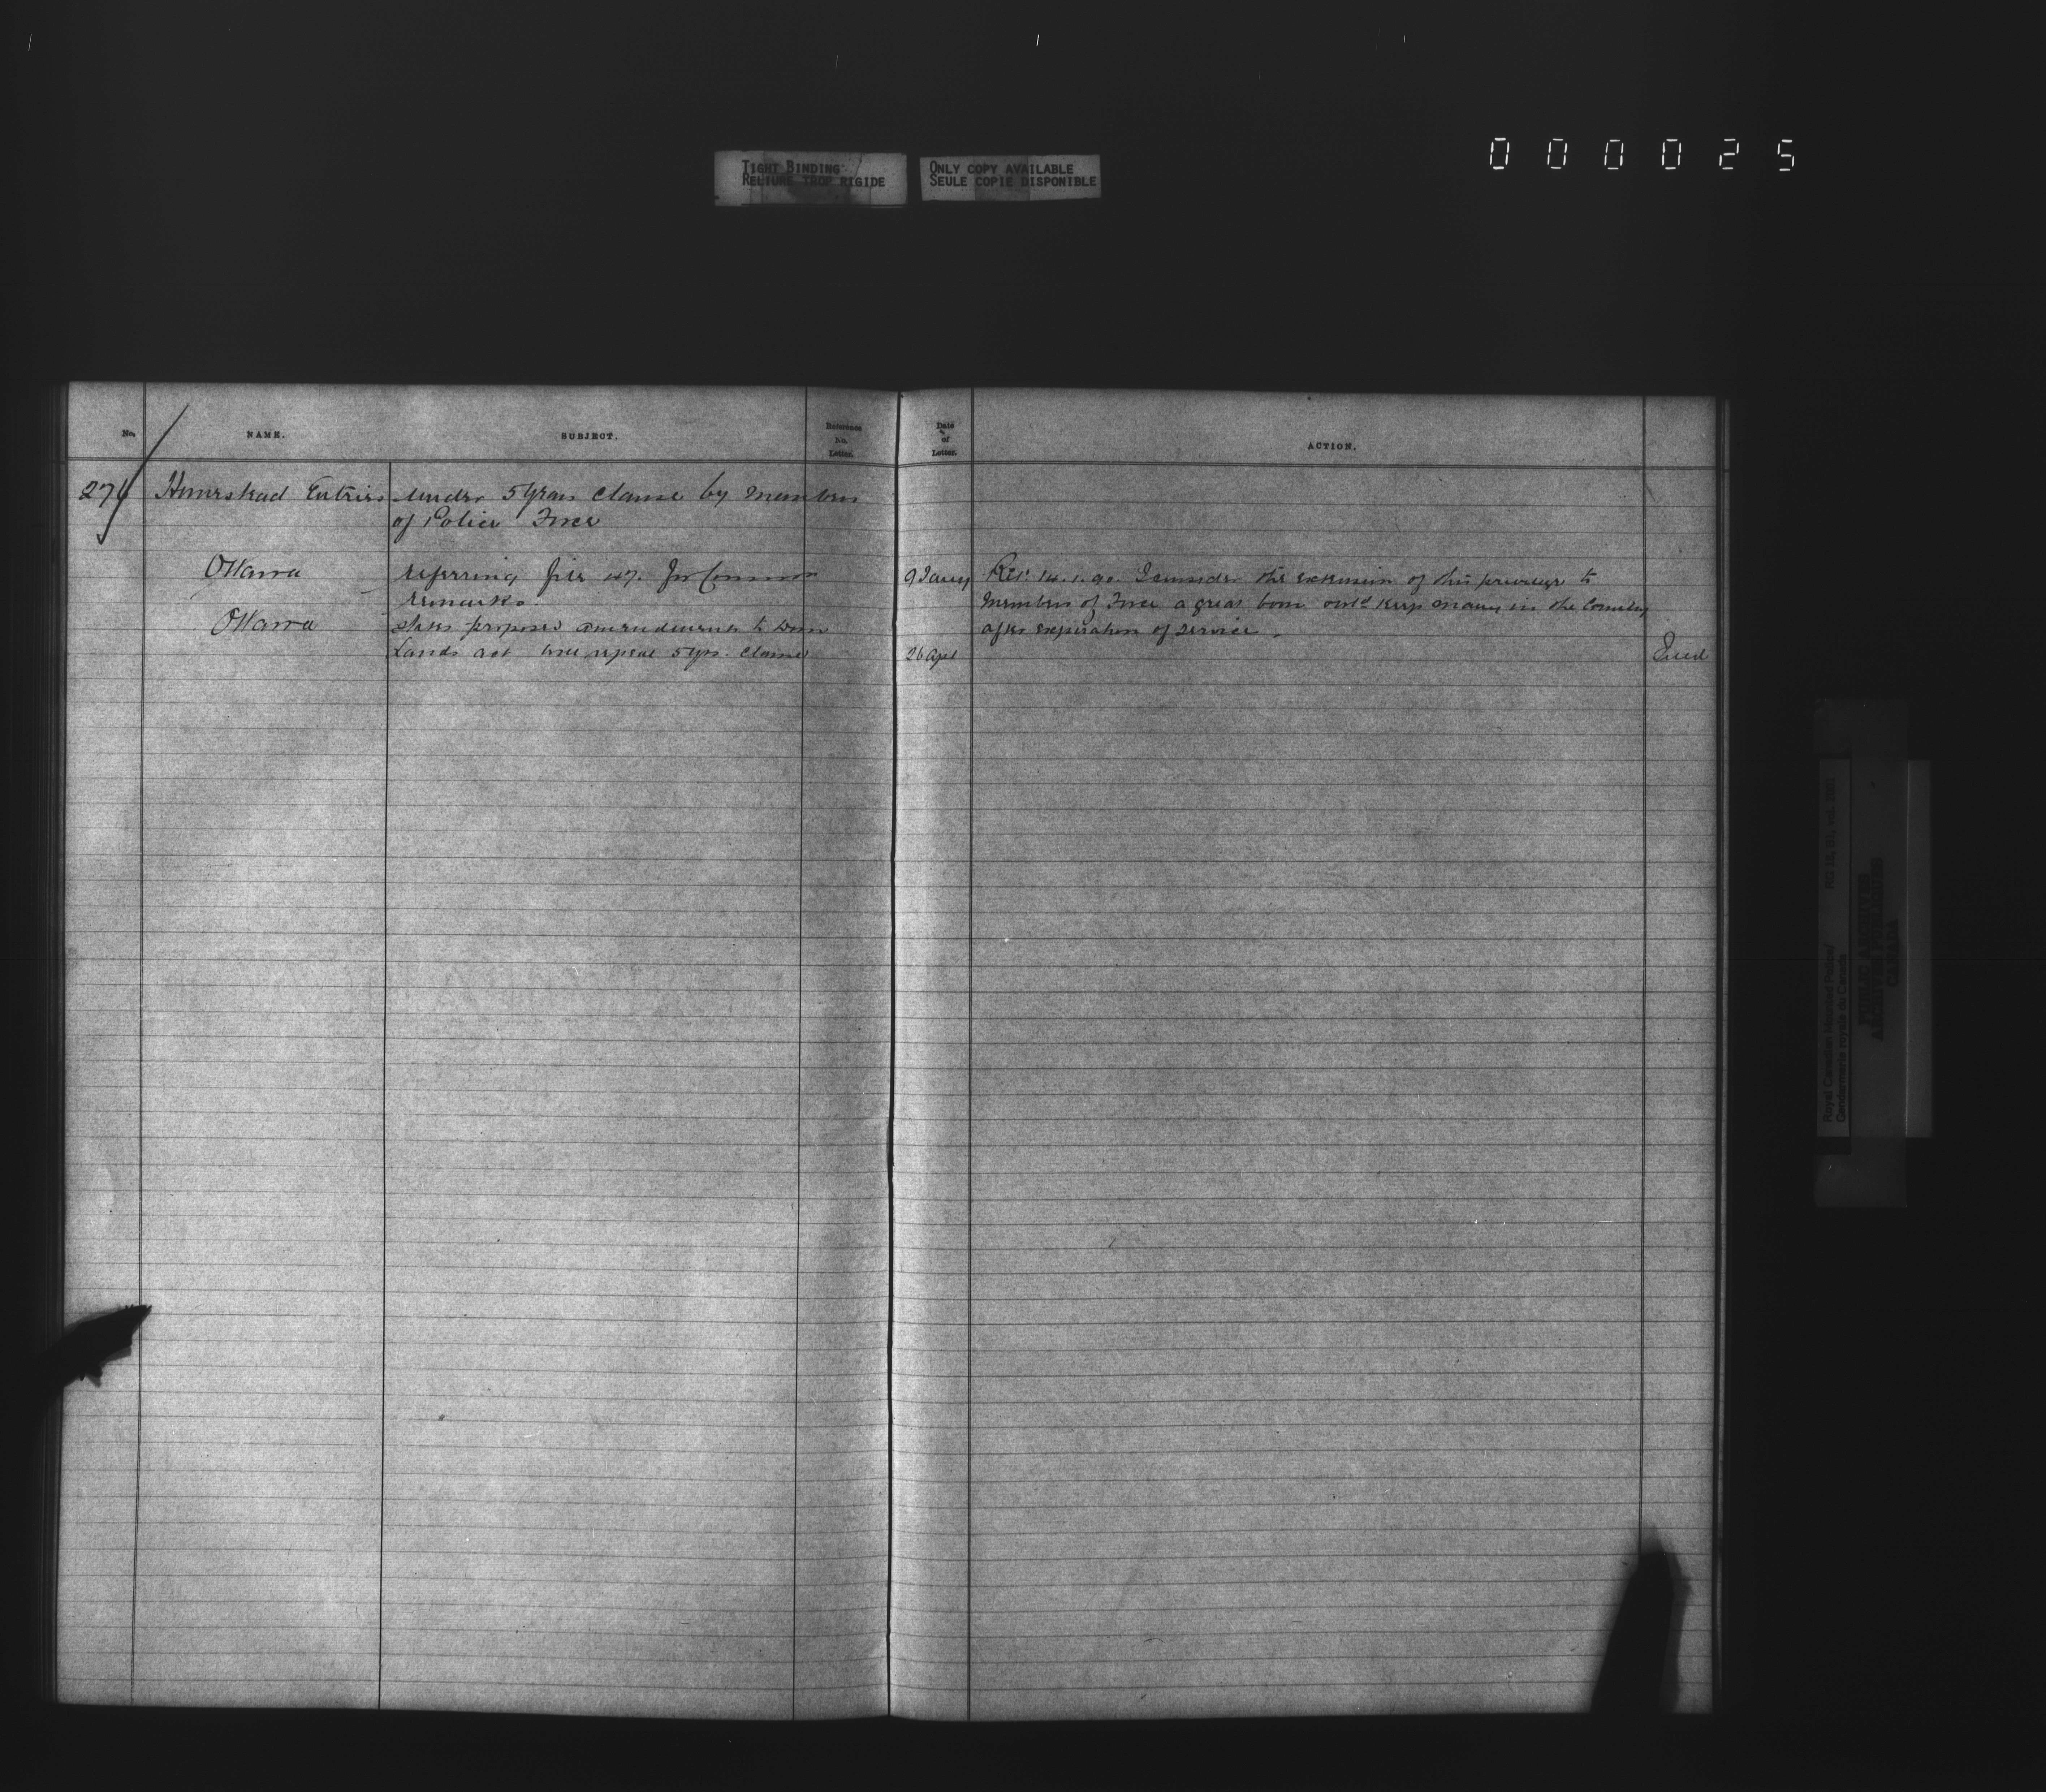 000025
TIGHT BINDING
RELIURE TROP RIGIDE
ONLY COPY AVAILABLE
SEULE COPIE DISPONIBLE
No.
NAME.
SUBJECT.
Reference
No.
Letter.
Date
of
Letter.
ACTION.
276
Homestead Entries under 5 Year Clause by Members
of Police Force
Ottawa referring file 47. for Comr
remarks.
9 Jany
Ret. 14.1.90. I consider the extension of this privilege to
Members of Force a great boon wld keep many in the Country
after expiration of service.
Ottawa states proposed amendments to Dom
Lands act will repeal 5 yrs. Clause
26 Apl
Royal Canadian Mounted Police/
Gendarmerie royale du Canada
RG 18, B1, vol. 2021
PUBLIC ARCHIVES
ARCHIVES PUBLIQUES
CANADA